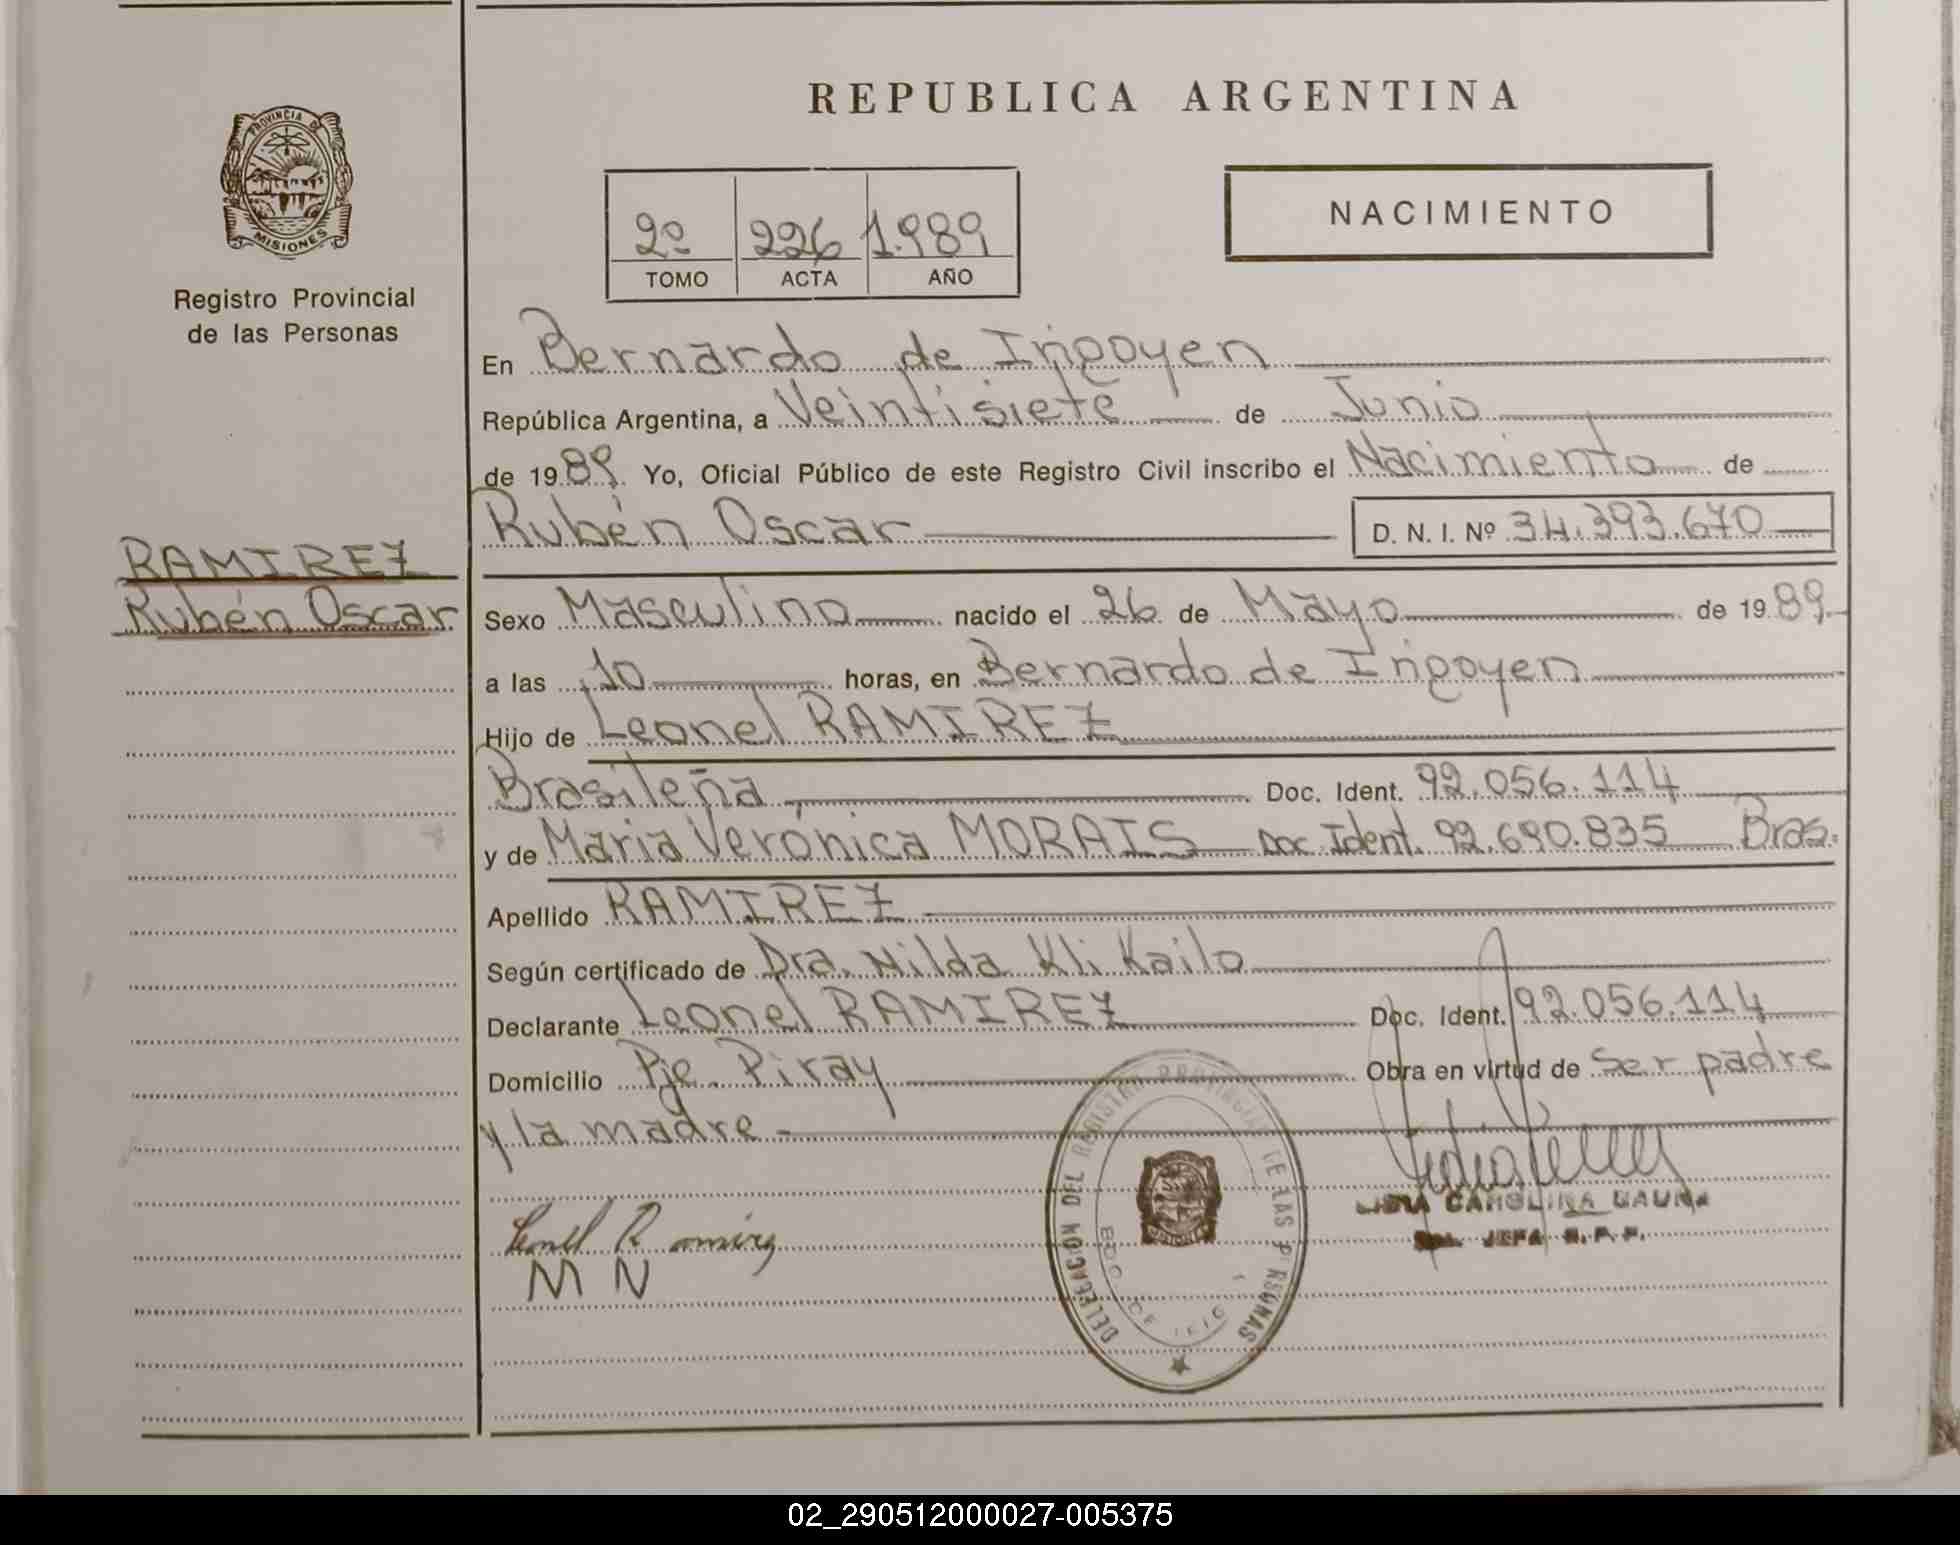 REPUBLICA ARGENTINA
PROVINCIA DE
MISIONES
Registro Provincial
de las Personas
2º 226 1.989
TOMO ACTA AÑO
NACIMIENTO
En Bernardo de Irigoyen
República Argentina, a Veintisiete de Junio
de 1989. Yo, Oficial Público de este Registro Civil inscribo el Nacimiento de
Rubén Oscar D. N. I. Nº 34.393.670
RAMIREZ
Rubén Oscar
Sexo Masculino nacido el 26 de Mayo de 1989.
a las 10 horas, en Bernardo de Irigoyen
Hijo de Leonel RAMIREZ
Brasileña, Doc. Ident. 92.056.114
y de Maria Verónica MORAIS Doc Ident. 92.690.835 Bras.
Apellido RAMIREZ
Según certificado de Dra. Nilda Kli Kailo
Declarante Leonel RAMIREZ Doc. Ident. 92.056.114
Domicilio Pje. Piray Obra en virtud de ser padre
y la madre -
DELEGACION DEL REGISTRO PROVINCIAL DE LAS PERSONAS
BDO. DE IRIG
CAROLINA
JEFA R.P.P.
Leonel Ramirez
M N
02_290512000027-005375